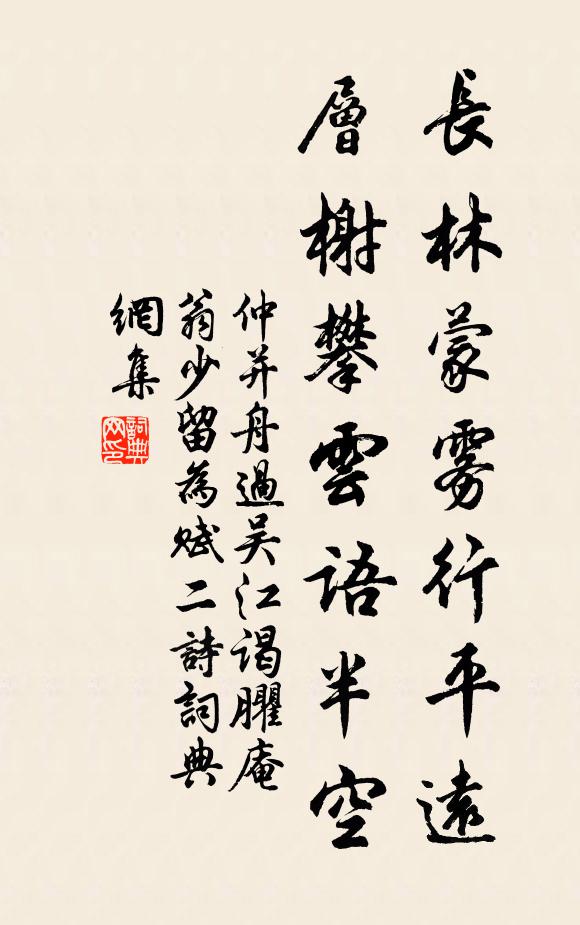 長林蒙霧行平遠
層榭攀雲語半空
仲并舟過吴江謁臞庵
翁少留為赋二詩詞典
網集
詞典網印